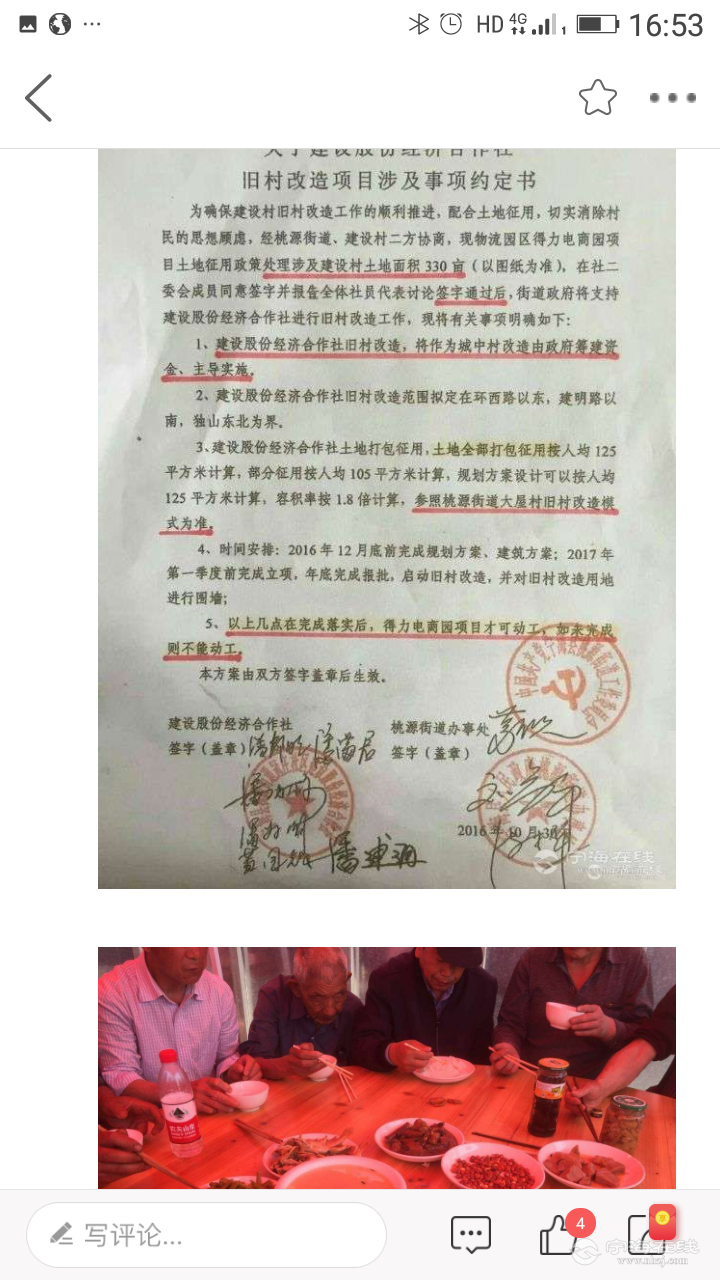 HD 4G 1 16:53
关于建设股份经济合作社
旧村改造项目涉及事项约定书
为确保建设村旧村改造工作的顺利推进，配合土地征用，切实消除村
民的思想顾虑，经桃源街道、建设村二方协商，现物流园区得力电商园项
目土地征用政策处理涉及建设村土地面积 330 亩（以图纸为准），在社二
委会成员同意签字并报告全体社员代表讨论签字通过后，街道政府将支持
建设股份经济合作社进行旧村改造工作，现将有关事项明确如下：
1、建设股份经济合作社旧村改造，将作为城中村改造由政府筹建资
金、主导实施。
2、建设股份经济合作社旧村改造范围拟定在环西路以东，建明路以
南，独山东北为界。
3、建设股份经济合作社土地打包征用，土地全部打包征用按人均 125
平方米计算，部分征用按人均 105 平方米计算，规划方案设计可以按人均
125 平方米计算，容积率按 1.8 倍计算，参照桃源街道大屋村旧村改造模
式为准。
4、时间安排：2016 年 12 月底前完成规划方案、建筑方案；2017 年
第一季度前完成立项，年底完成报批，启动旧村改造，并对旧村改造用地
进行围墙；
5、以上几点在完成落实后，得力电商园项目才可动工，如未完成
则不能动工。
本方案由双方签字盖章后生效。
建设股份经济合作社 桃源街道办事处
签字（盖章） 签字（盖章）
2016 年 10 月
宁海在线
写评论...
4
宁海在线
www.nhzj.com